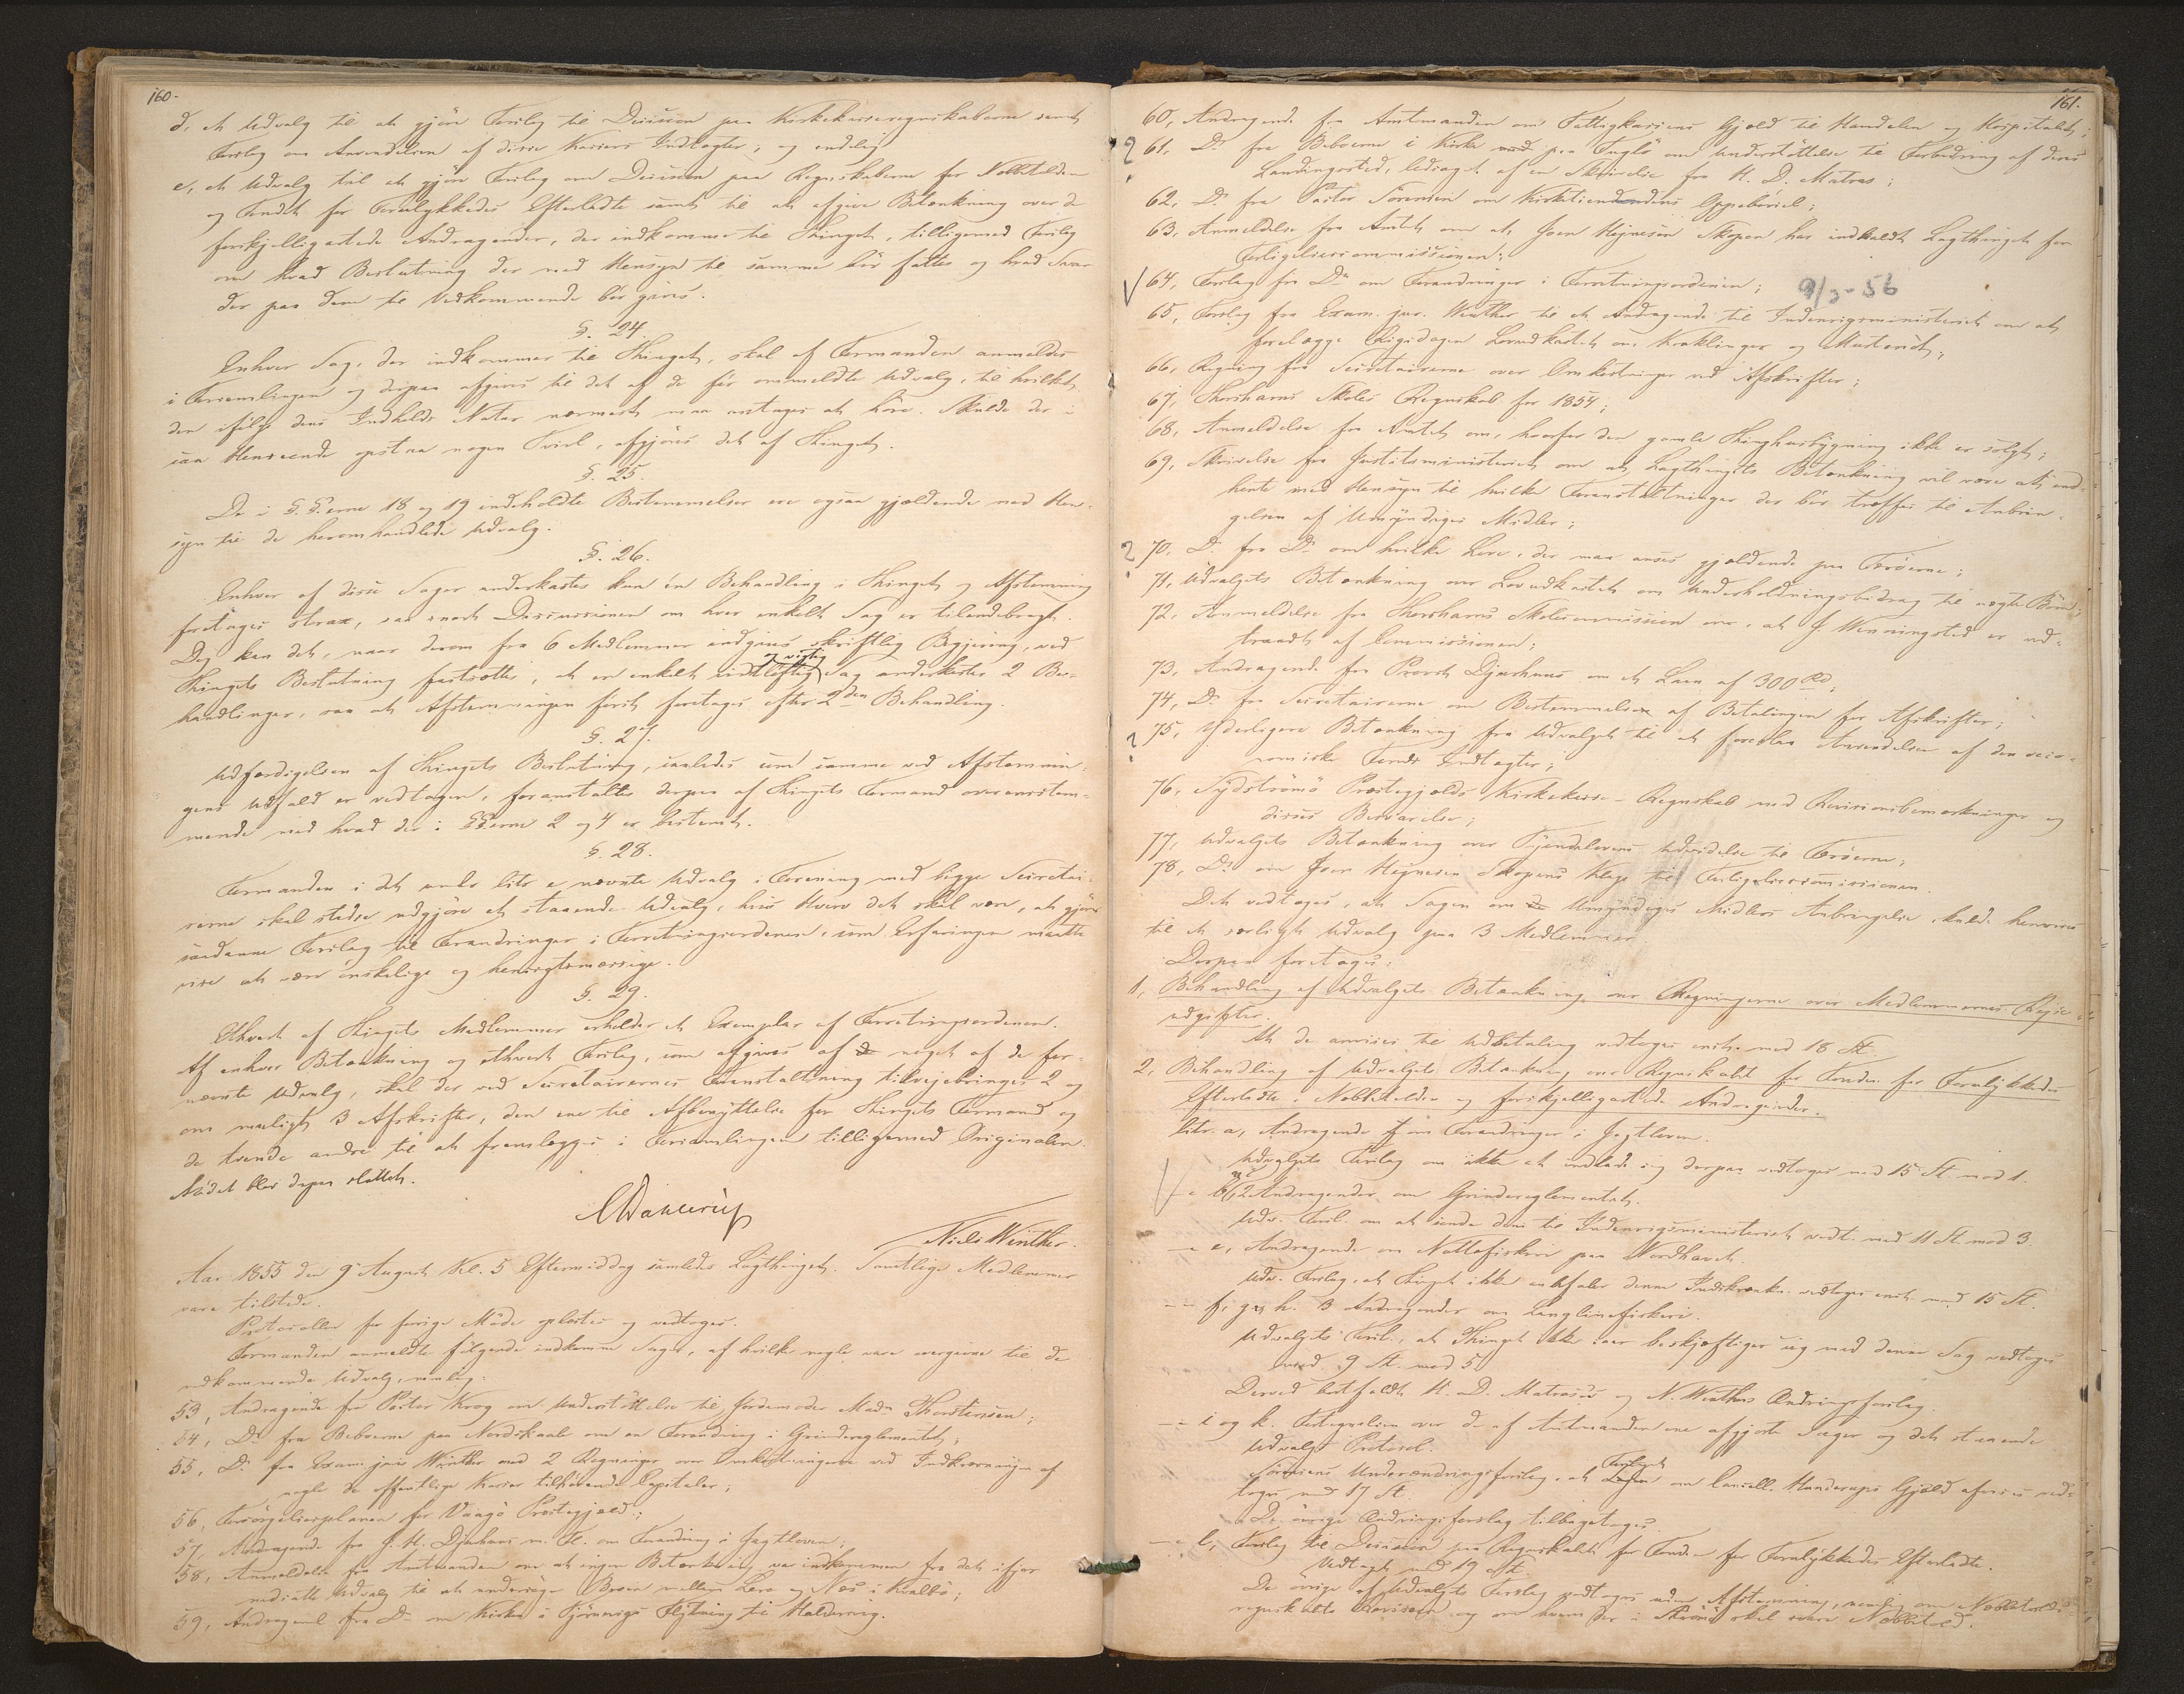 160.
d, et Udvalg til at gjöre Forslag til Decision paa Kirkekasseregnskaberne samt
Forslag om Anvendelsen af disse Kassers Indtægter; og endelig
e, et Udvalg til at gjöre Forslag om Decision paa Regnskaberne for Næbbetolden
og Fondet for Forulykkedes Efterladte samt til at afgive Betænkning over de
forskjelligartede Andragender, der indkomme til Thinget, tilligemed Forslag
om hvad Beslutning der med Hensyn til samme bör fattes og hvad Svar
der paa dem til Vedkommende bör gives.
§. 24.
Enhver Sag, der indkommer til Thinget, skal af Formanden anmeldes
i Forsamlingen og derpaa afgives til det af de för ommeldte Udvalg, til hvilket
den ifölge dens Indholds Natur nærmest maa antages at höre. Skulde der i
saa Henseende opstaa nogen Tvivl, afgjöres det af Thinget.
§. 25.
De i §.§.erne 18 og 19 indeholdte Bestemmelser ere ogsaa gjældende med Hen-
syn til de heromhandlede Udvalg.
§. 26.
Enhver af disse Sager underkastes kun en Behandling i Thinget og Afstemning
foretages strax, saa snart Discussionen om hver enkelt Sag er tilendebragt.
Dog kan det, naar derom fra 6 Medlemmer indgives skriftlig Begjæring, ved
Thingets Beslutning fastsættes, at en enkelt vidtlöftig og vigtig Sag underkastes 2 Be-
handlinger, saa at Afstemningen först foretages efter 2den Behandling.
§. 27.
Udfærdigelsen af Thingets Beslutning, saaledes som samme ved Afstemnin-
gens Udfald er vedtagen, foranstaltes derpaa af Thingets Formand overensstem-
mende med hvad der i §§erne 2 og 4 er bestemt.
§. 28.
Formanden i det under litr e nævnte Udvalg i Forening med begge Secretai-
rerne skal stedse udgjöre et staaende Udvalg, hvis Hverv det skal være, at gjöre
saadanne Forslag til Forandringer i Forretningsordenen, som Erfaringen maatte
vise at være önskelige og hensigtsmæssige.
§. 29.
Ethvert af Thingets Medlemmer erholder et Exemplar af Forretningsordenen.
Af enhver Betænkning og ethvert Forslag, som afgives af de noget af de for-
nævnte Udvalg, skal der ved Secretairernes Foranstaltning tilvejebringes 2 og
om muligt 3 Afskrifter, den ene til Afbenyttelse for Thingets Formand og
de tvende andre til at fremlægges i Forsamlingen tilligemed Originalen.
Mödet blev derpaa sluttet.
CDahlerup
Niels Winther.
Aar 1855 den 9 August Kl. 5 Eftermiddag samledes Lagthinget. Samtlige Medlemmer
vare tilstede.
Protocollen for forrige Möde oplæstes og vedtoges.
Formanden anmeldte fölgende indkomne Sager, af hvilke nogle vare overgivne til de
vedkommende Udvalg, nemlig:
53, Andragende fra Pastor Krog om Understöttelse til Jordemoder Madm Thorsteinsen;
54, Do fra Beboerne paa Nordskaale om en Forandring i Grindereglementet;
55, Do fra Exam. juris Winther med 2 Regninger over Omkostningerne ved Inddrivningen af
nogle de offentlige Kasser tilhörende Capitaler;
56, Forsörgelsesplanen for Vaagö Præstegjæld;
57, Andragende fra J. H. Djurhuus m. Fl. om Forandring i Jagtloven;
58, Anmeldelse fra Amtmanden om at ingen Betænkning var indkommen fra det ifjor
nedsatte Udvalg til at undersöge Broen mellem Lere og Næs i Kvalbö;
59, Andragend fra Do om Kirken i Fjörnevigs Flytning til Haldervig.
161.
60, Andragende fra Amtmanden om Fattigkassens Gjæld til Handelen og Hospitalet;
? 61, Do fra Beboerne i Kirke paa Fuglö om Understöttelse til Forbedring af deres
Landingssted, ledsaget af en Skrivelse fra H. D. Matras;
62, Do fra Pastor Sörensen om Kirketiendens Oppebörsel;
63, Anmeldelse fra Amtet om at Joen Hejnesen Skopen har indkaldt Lagthinget for
Forligelsescommissionen;
64, Forslag fra Do om Forandringer i Forretningsordenen; 9/3-56
65, Forslag fra Exam. jur. Winther til et Andragende til Indenrigsministeriet om at
forelægge Rigsdagen Lovudkastet om Kræklinger og Musterot;
66, Regning fra Secretairerne over Omkostninger ved Afskrifter;
67, Thorshavns Skoles Regnskab for 1854;
68, Anmeldelse fra Amtet om, hvorfor den gamle Thinghusbygning ikke er solgt;
69, Skrivelse fra Justitsministeriet om at Lagthingets Betænkning vil være at ind-
hente med Hensyn til hvilke Foranstaltninger der bör træffes til Anbrin-
gelsen af Umyndiges Midler;
? 70, Do fra Do om hvilke Love, der maa anses gjældende paa Færöerne;
71, Udvalgets Betænkning over Lovudkastet om Underholdningsbidrag til uægte Börn;
72, Anmeldelse fra Thorshavns Skolecommission om, at J. Wenningsted er ud-
traadt af Commissionen;
73, Andragende fra Provst Djurhuus om et Laan af 300 Rd;
74, Do fra Secretairerne om Bestemmelsen af Betalingen for Afskrifter;
? 75, Yderligere Betænkning fra Udvalget til at foreslaa Anvendelsen af den oeco-
nomiske Fonds Indtægter;
76, Sydströmö Præstegjælds Kirkekasse-Regnskab med Revisionsbemærkninger og
disses Besvarelse;
77, Udvalgets Betænkning over Tyendelovens Udvidelse til Færöerne;
78, Do om Joen Hejnesen Skopens Klage til Forligelsescommissionen.
Det vedtoges, at Sagen om de Umyndiges Midlers Anbringelse skulde henvises
til et særligt Udvalg paa 3 Medlemmer.
Derpaa foretoges:
1, Behandling af Udvalgets Betænkning over Regningerne over Medlemmernes Rejse-
udgifter.
At de anvises til Udbetaling vedtoges enst. med 18 St.
2, Behandling af Udvalgets Betænkning over Regnskabet for Fonden for Forulykkedes
Efterladte, Næbbetolden og forskjelligartede Andragender.
litr. a, Andragende om Forandringer i Jagtloven.
Udvalgets Forslag om ikke at indlade sig derpaa vedtoges med 15 St. mod 1.
2 Andragender om Grindereglementet.
Udv. Forsl. om at sende dem til Indenrigsministeriet vedt. med 11 St. mod 3.
— e, Andragende om Nattefiskeri paa Nordhavet.
Udv. Forslag, at Thinget ikke anbefaler denne Indskrænkn. vedtoges enst. med 15 St.
— f, g og h. 3 Andragender om Langlinefiskeri.
Udvalgets Forsl., at Thinget ikke iaar beskjæftiger sig med denne Sag vedtoges
med 9 St. mod 5.
Derved bortfaldt H. D. Matrases og N. Winthers Ændringsforslag.
— i og k. Fortegnelsen over de af Amtmanden ene afgjorte Sager og det staaende
Udvalgs Protocol.
Sörensens Underændringsforslag, at Forslaget om Cancell. Hunderups Gjæld afvises ved-
toges med 17 St.
De övrige Ændringsforslag tilbagetoges.
— l, Forslag til Decision paa Regnskabet for Fonden for Forulykkedes Efterladte.
Vedtoges med 19 St.
De övrige af Udvalgets Forslag vedtoges uden Afstemning, nemlig om Næbbetolds
regnskabets Revision og om hvem der i skal svare Næbbetold.